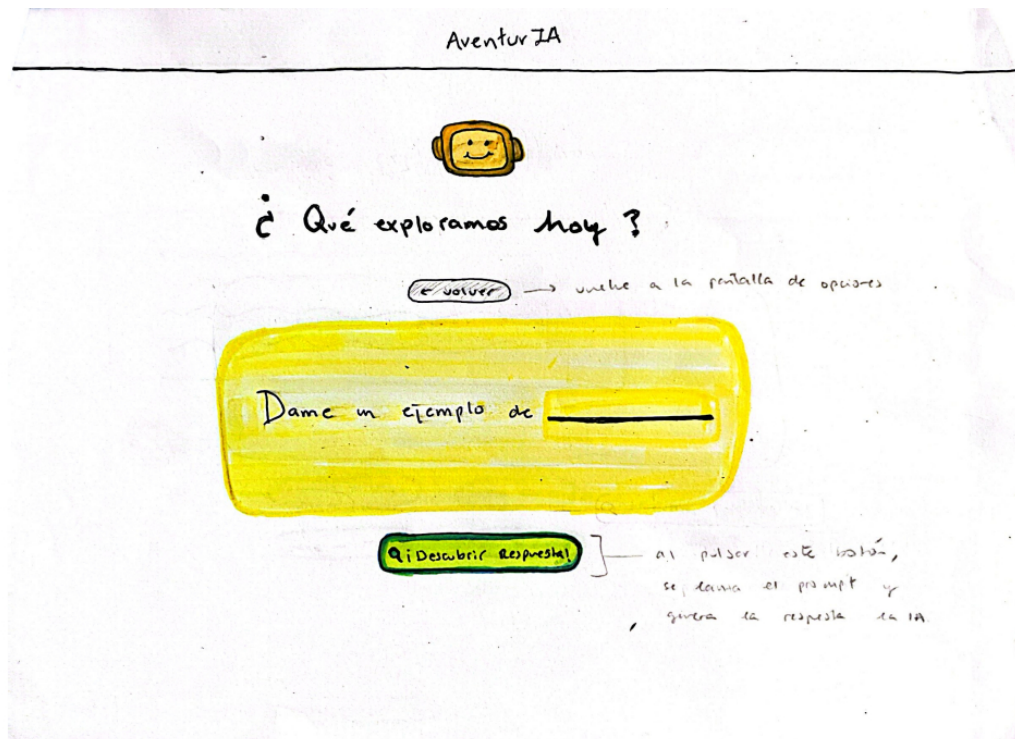 AventurIA
¿Qué exploramos hoy?
← volver
vuelve a la pantalla de opciones
Dame un ejemplo de
¡Descubrir Respuesta!
al pulsar este botón,
se lanza el prompt y
genera la respuesta la IA.